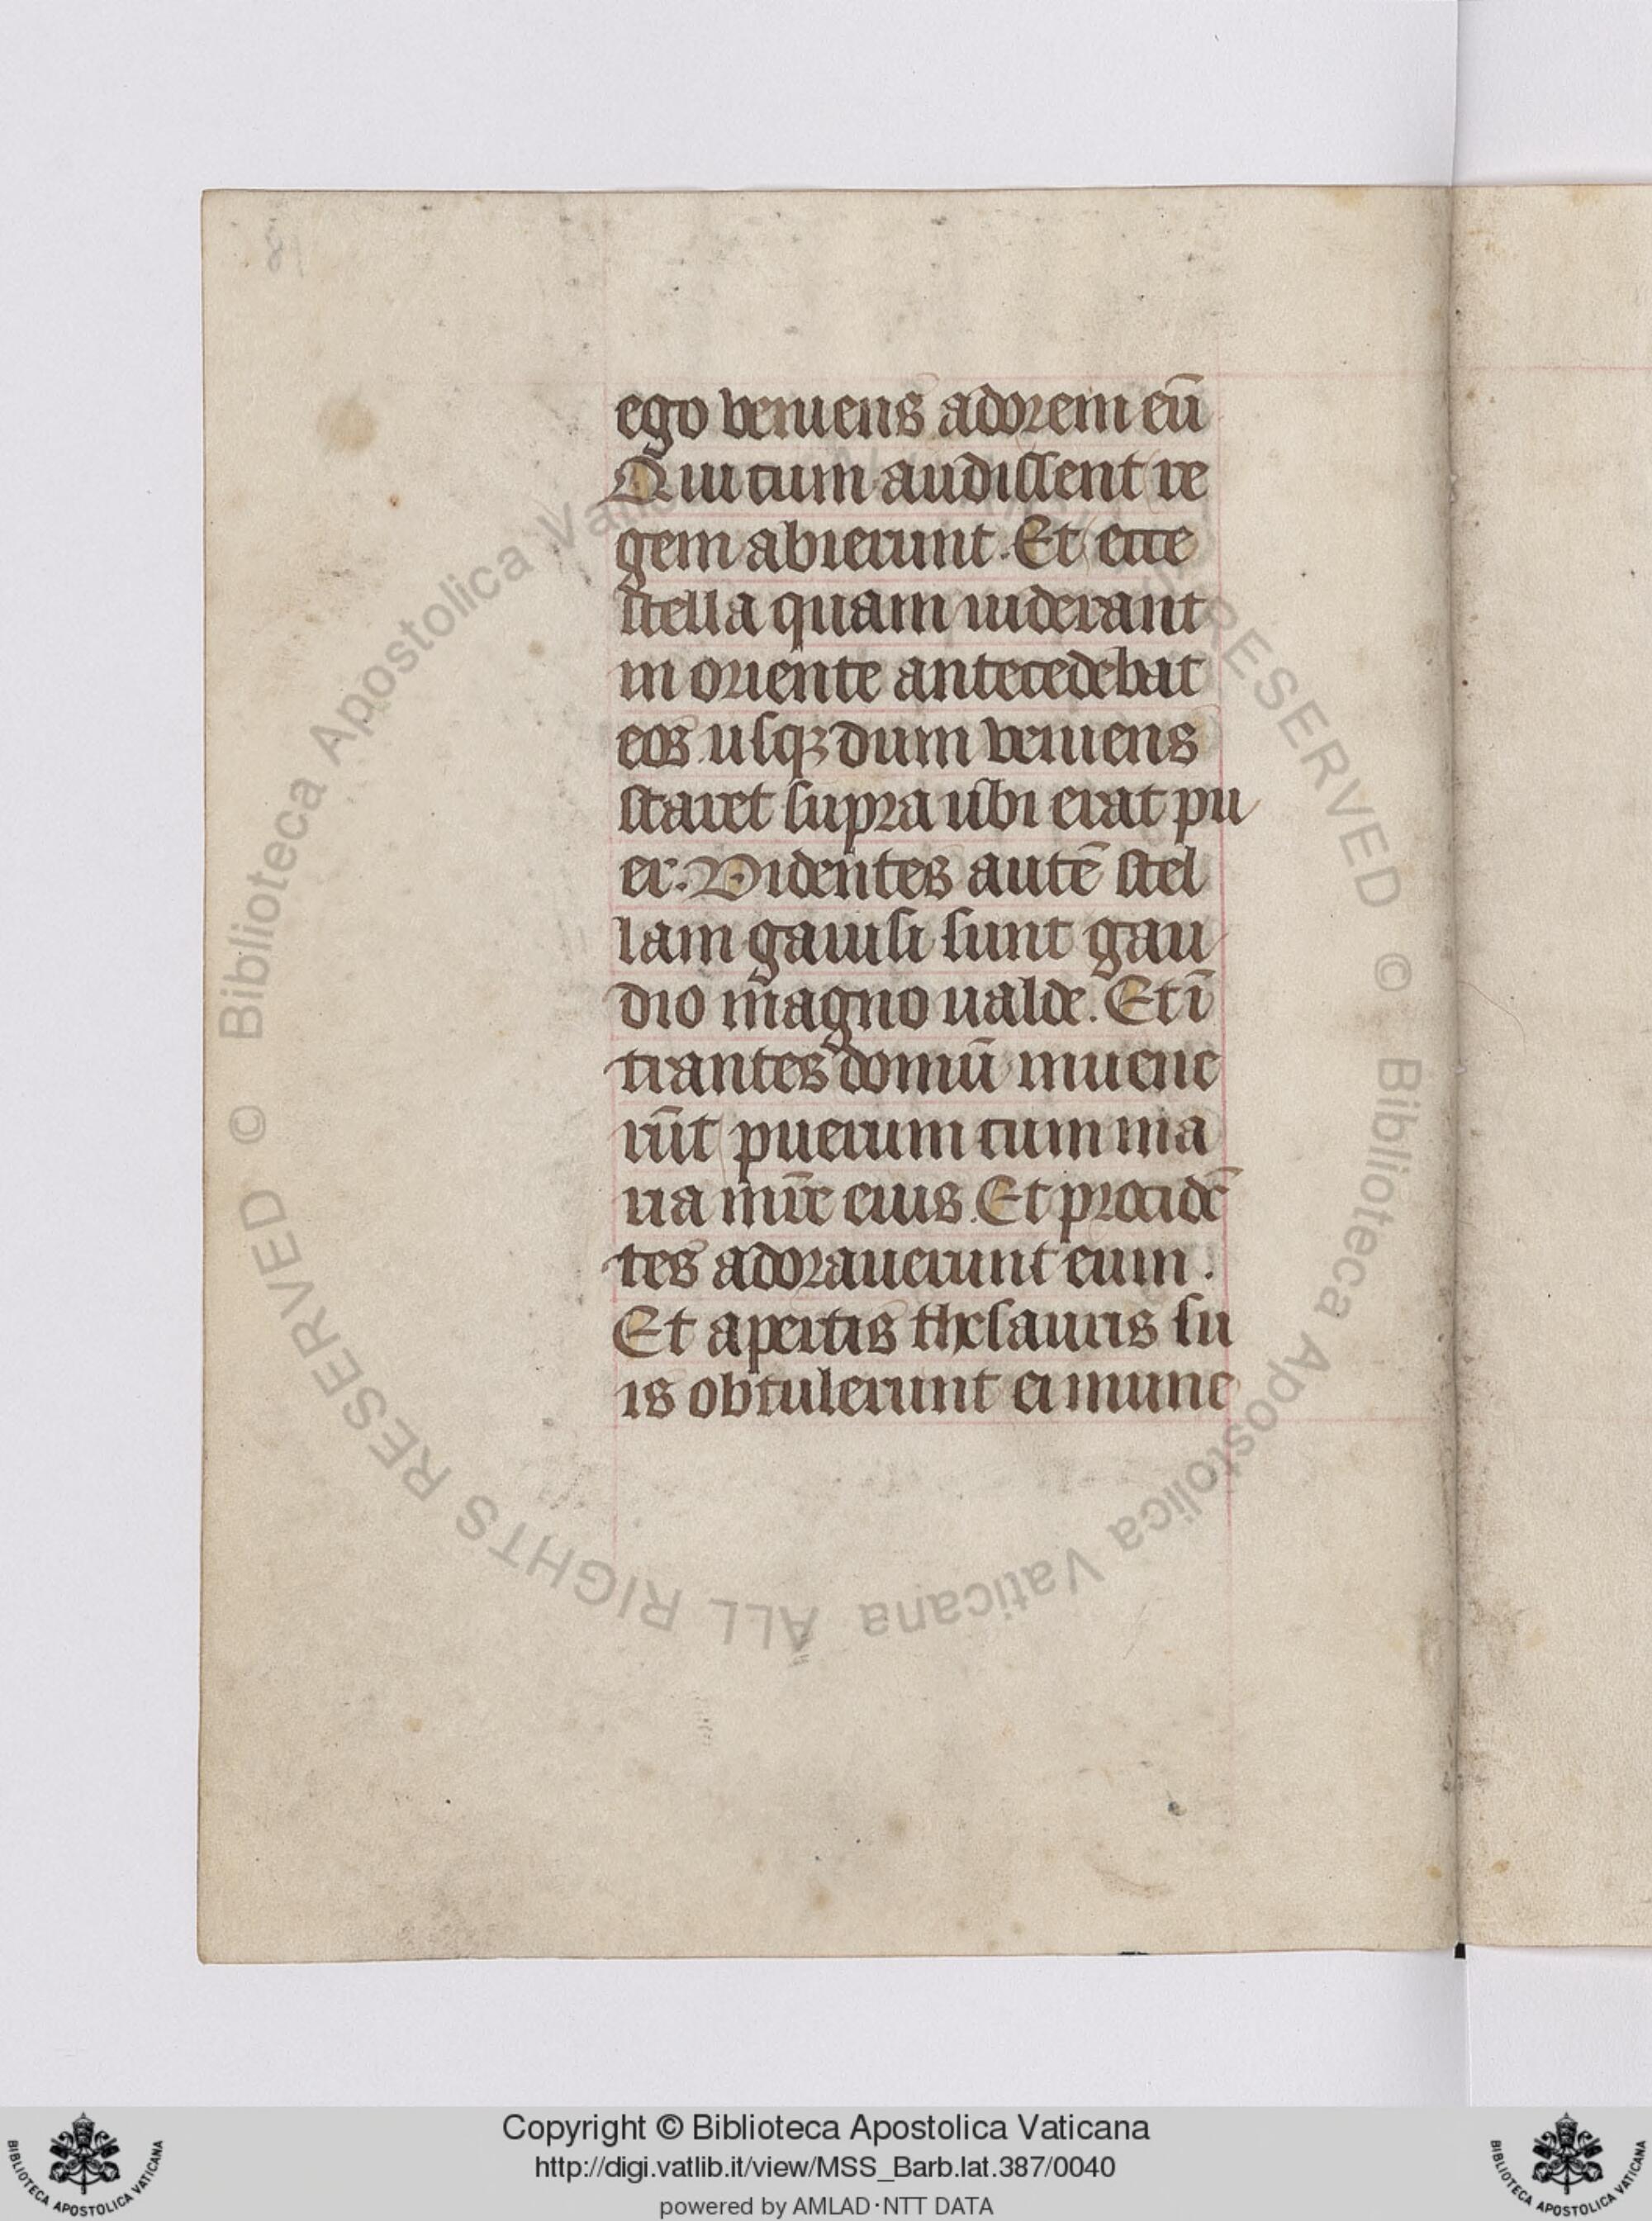 ego veniens adorem eū
Qui cum audissent re
gem abierunt. Et ecce
stella quam uiderant
in oriente antecedebat
eos usqꝫ dum veniens
staret supra ubi erat pu
er. Videntes autē stel
lam gauisi sunt gau
dio magno ualde. Et ī
trantes domū inuene
rūt puerum cum ma
ria mr̄e eius. Et procidē
tes adorauerunt eum.
Et apertis thesauris su
is obtulerunt ei mune
Biblioteca Apostolica Vaticana ALL RIGHTS RESERVED © Biblioteca Apostolica Vaticana ALL RIGHTS RESERVED ©
Copyright © Biblioteca Apostolica Vaticana
http://digi.vatlib.it/view/MSS_Barb.lat.387/0040
powered by AMLAD·NTT DATA
BIBLIOTECA APOSTOLICA VATICANA
BIBLIOTECA APOSTOLICA VATICANA